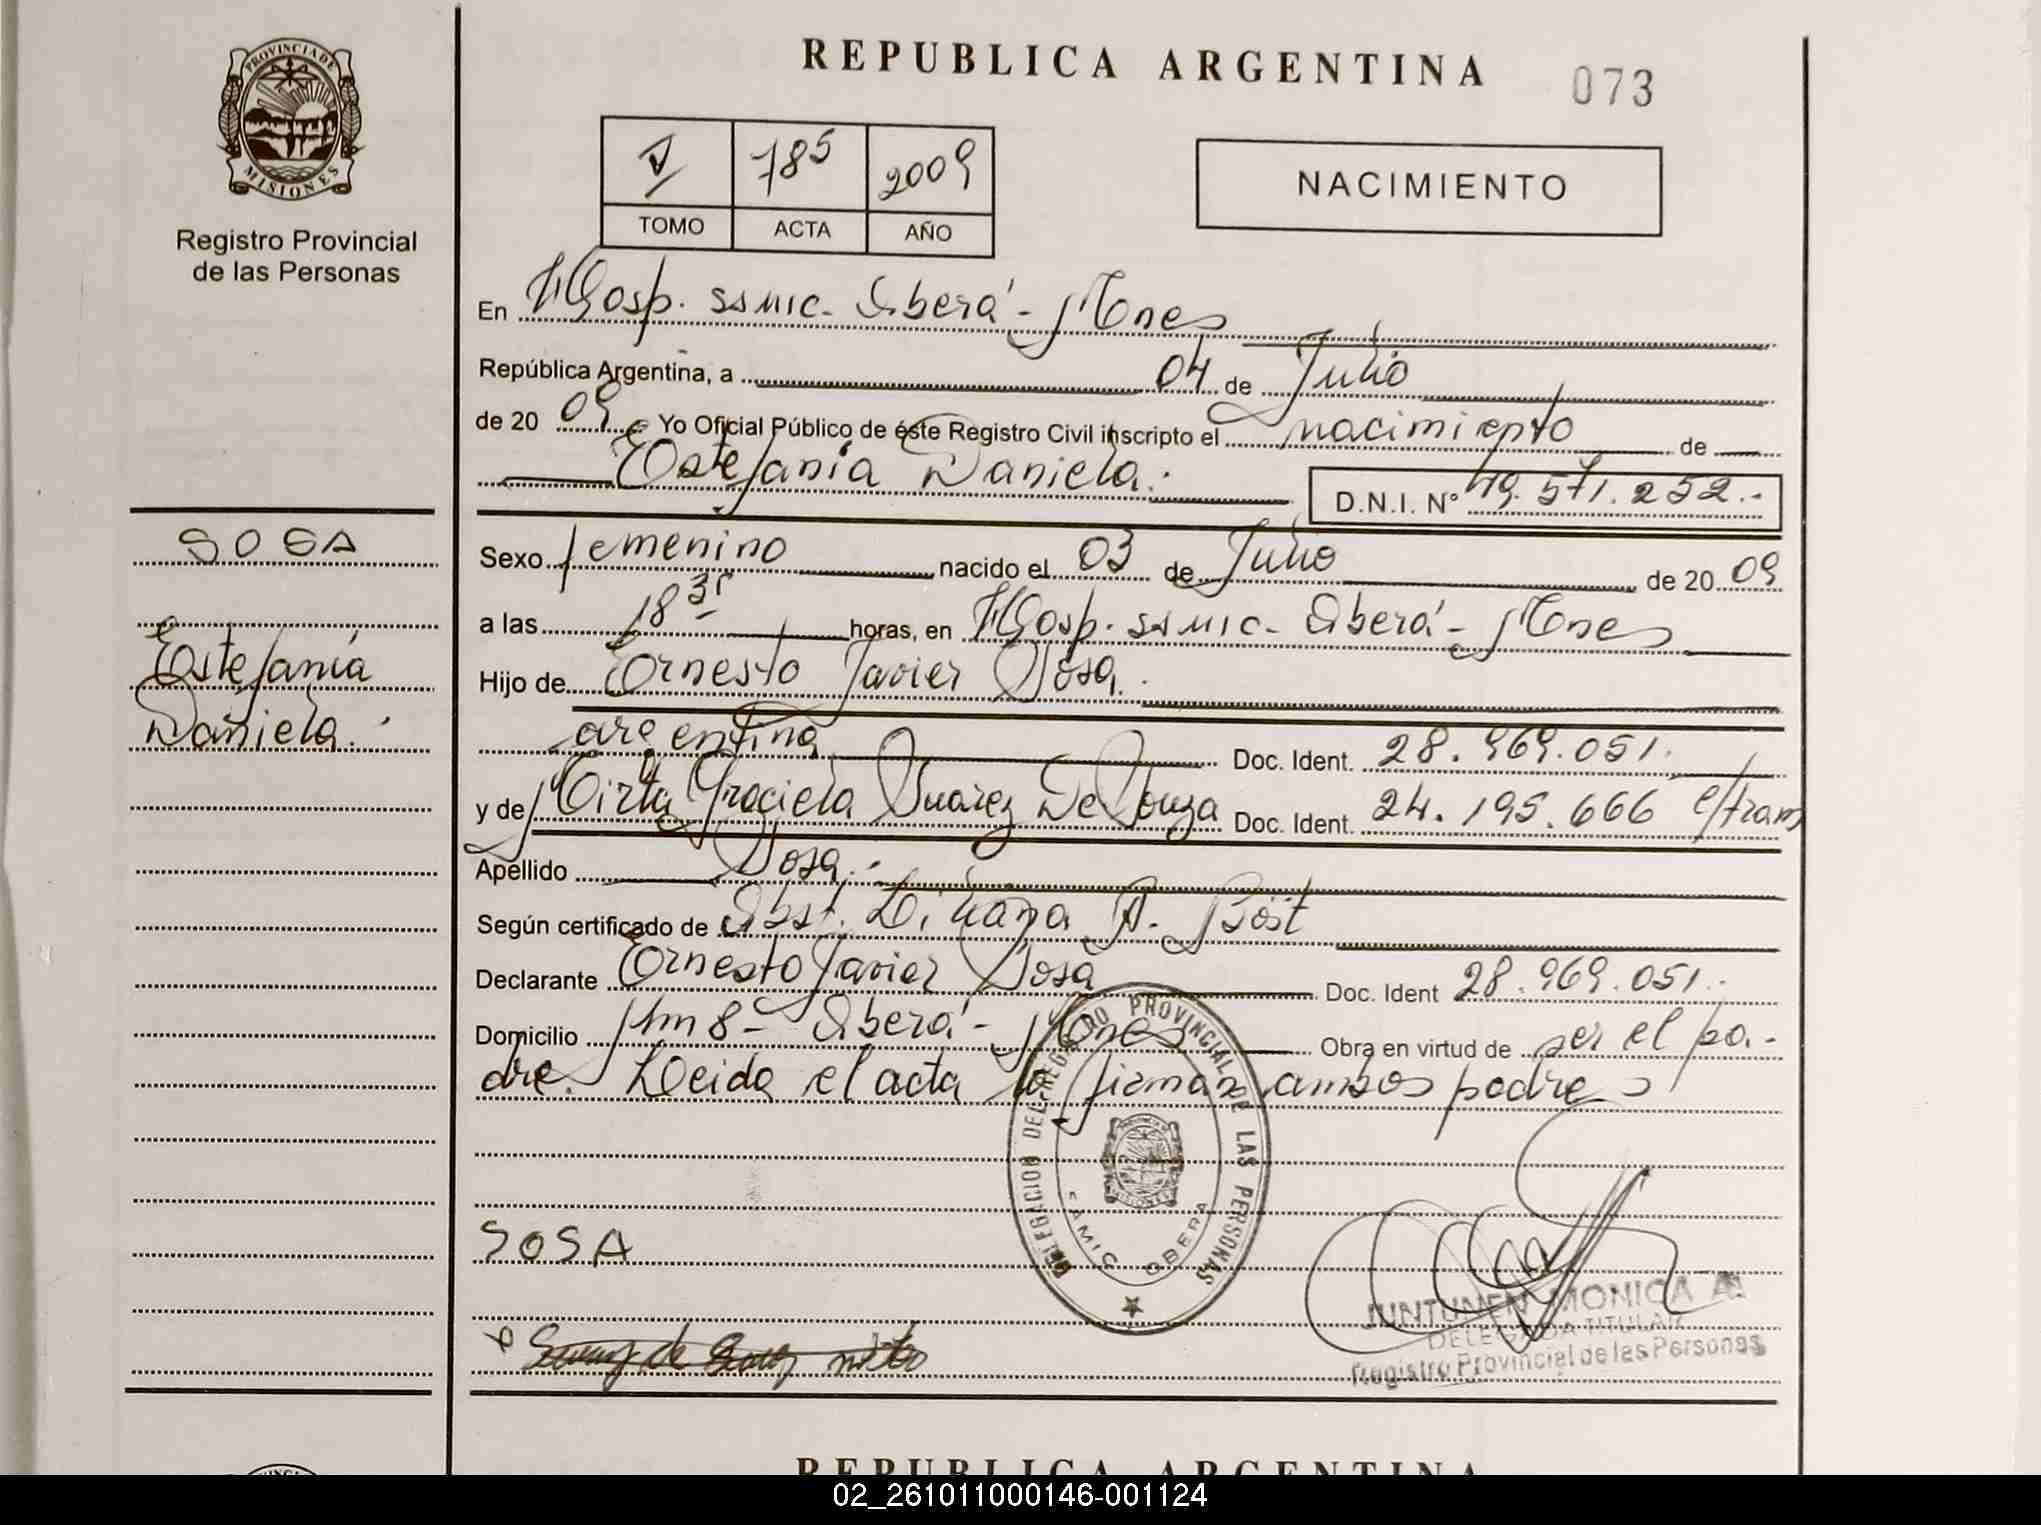 PROVINCIA DE
MISIONES
Registro Provincial
de las Personas
REPUBLICA ARGENTINA
073
V 785 2009
TOMO ACTA AÑO
NACIMIENTO
En Hosp. SSMIC. Oberá - Mnes
República Argentina, a 04 de Julio
de 20 09 Yo Oficial Público de éste Registro Civil inscripto el nacimiento de
Estefanía Daniela.
D.N.I. Nº 49.571.252.-
SOSA
Estefanía
Daniela.
Sexo femenino nacido el 03 de Julio de 20 09
a las 18 horas, en Hosp. SSMIC- Oberá - Mnes
Hijo de Ernesto Javier Sosa.
argentina Doc. Ident. 28.969.051.
y de Mirta Graciela Suarez De Souza Doc. Ident. 24.195.666 e/tram
Apellido Sosa.-
Según certificado de Obst. Liliana A. Böst
Declarante Ernesto Javier Sosa Doc. Ident 28.969.051.-
Domicilio Km 8 - Oberá - Mnes Obra en virtud de ser el pa-
dre. Leida el acta la firman ambos padres
DELEGACION DEL REGISTRO PROVINCIAL DE LAS PERSONAS
OBERA
SOSA
JUNTUNEN MONICA A.
DELEGADA TITULAR
Registro Provincial de las Personas
REPUBLICA ARGENTINA
02_261011000146-001124